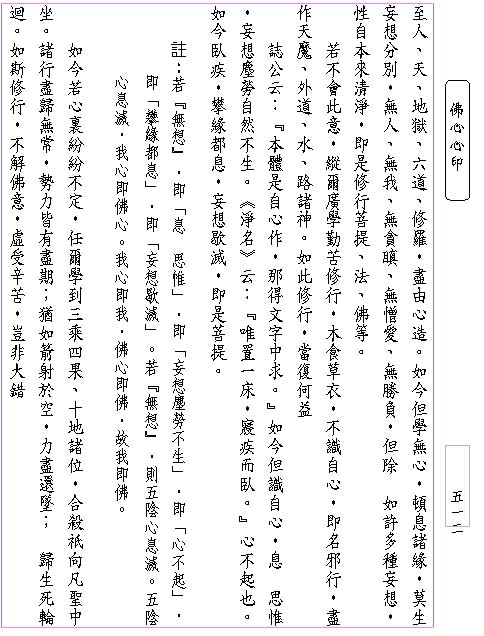 佛心心印
五一二
至人、天、地獄、六道、修羅，盡由心造。如今但學無心，頓息諸緣，莫生
妄想分別，無人、無我、無貪瞋、無憎愛、無勝負，但除　如許多種妄想，
性自本來清淨，即是修行菩提、法、佛等。
若不會此意，縱爾廣學勤苦修行，木食草衣，不識自心，即名邪行，盡
作天魔、外道、水、路諸神。如此修行，當復何益
誌公云：『本體是自心作，那得文字中求。』如今但識自心，息　思惟
，妄想塵勞自然不生。《淨名》云：『唯置一床，寢疾而臥。』心不起也。
如今臥疾，攀緣都息，妄想歇滅，即是菩提。
註：若『無想』，即「息　思惟」，即「妄想塵勞不生」，即「心不起」，
即「攀緣都息」，即「妄想歇滅」。若『無想』，則五陰心息滅。五陰
心息滅，我心即佛心。我心即我，佛心即佛，故我即佛。
如今若心裏紛紛不定，任爾學到三乘四果、十地諸位，合殺祇向凡聖中
坐。諸行盡歸無常，勢力皆有盡期；猶如箭射於空，力盡還墜；　歸生死輪
迴。如斯修行，不解佛意，虛受辛苦，豈非大錯